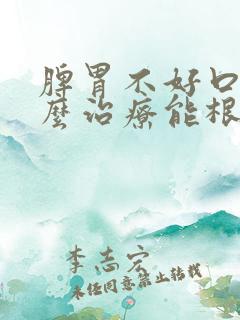 脾胃不好口
麽治療能根
李志宏
未经同意禁止转载